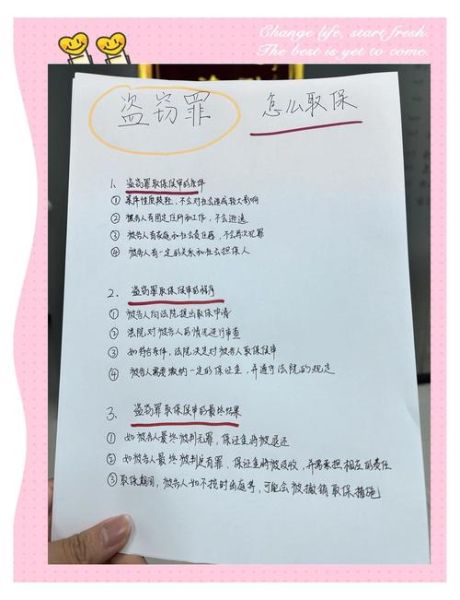 Change life, start fresh.
The best is yet to come.
盗窃罪 怎么取保
1、盗窃罪取保候审的条件
① 案件性质较轻，不会对社会造成较大影响
② 被告人有固定住所和工作，不会逃逸
③ 被告人有家庭和社会责任感，不会再次犯罪
④ 被告人有一定的关系和社会担保人
2、盗窃罪取保候审的程序
① 被告人向法院提出取保申请
② 法院对被告人的情况进行审查
③ 如符合条件，法院决定对被告人取保候审
④ 被告人需要缴纳一定的保证金，并遵守法院的规定
3、盗窃罪取保候审的最终结果
① 如被告人最终被判无罪，保证金将被退还
② 如被告人最终被判定有罪，保证金将被没收，并需承担相应的责任
③ 取保期间，被告人如不按时出庭等，可能会被撤销取保措施